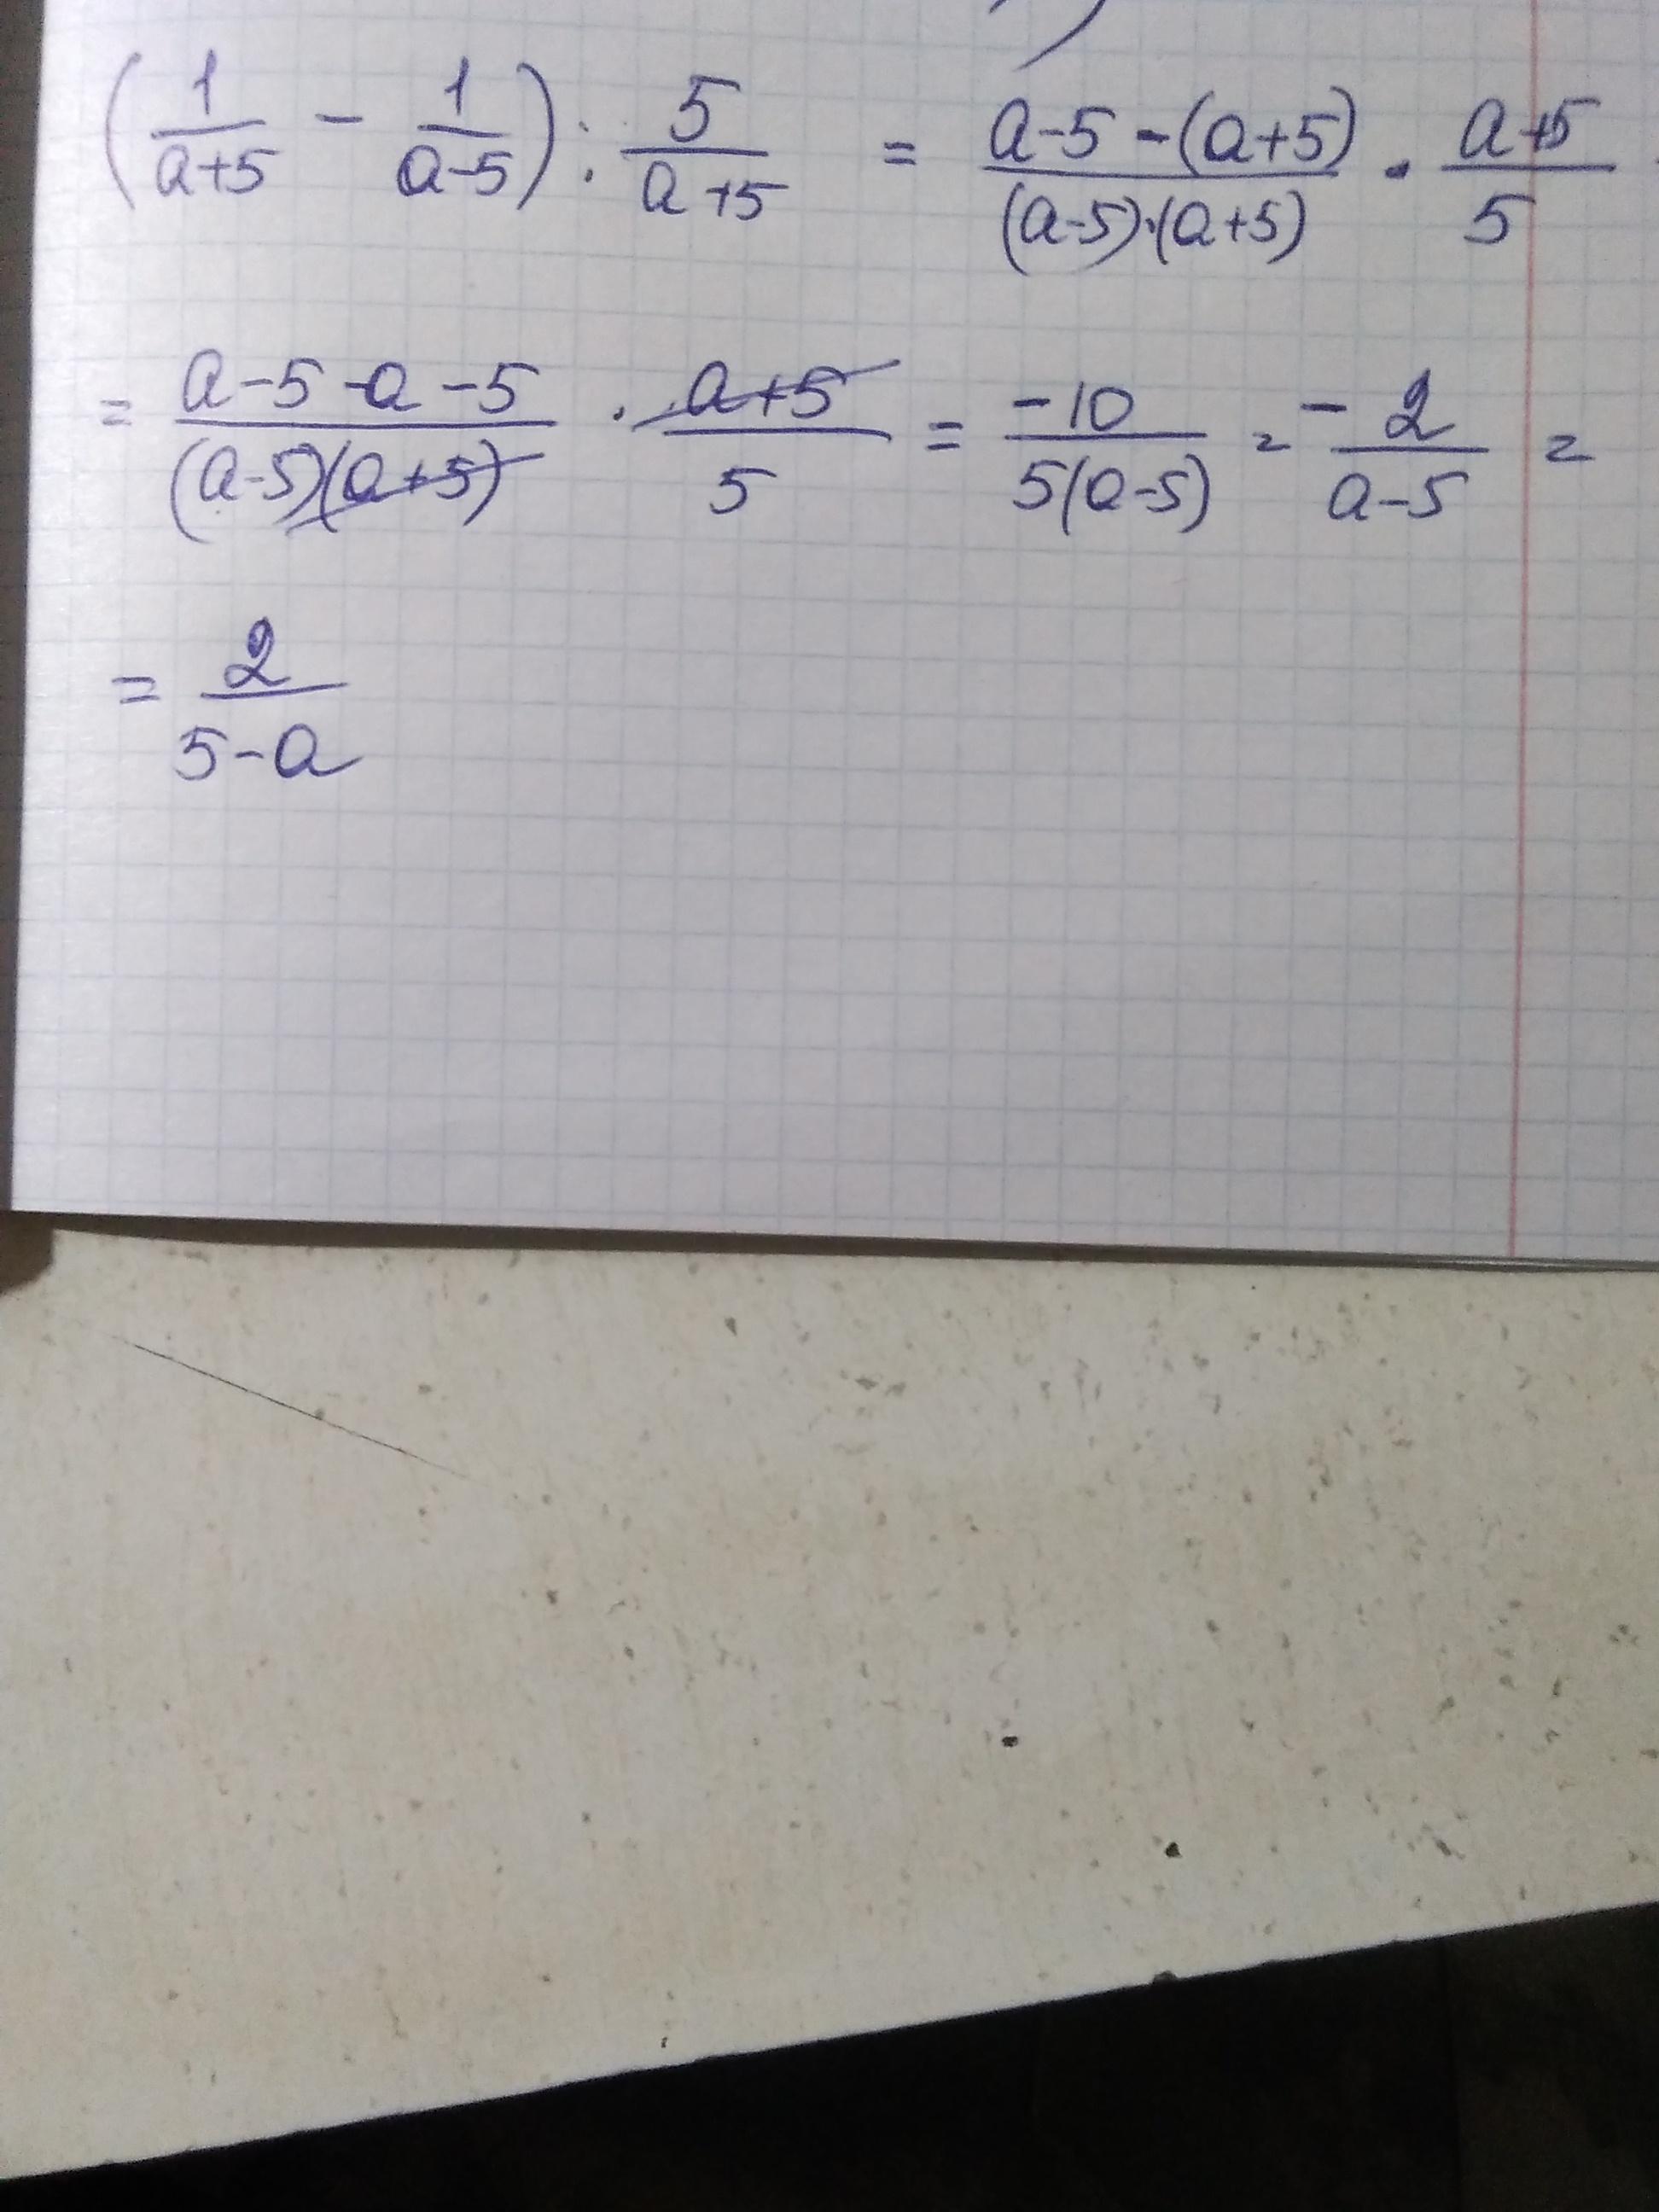 (1/(a+5) - 1/(a-5)) : 5/(a+5) = (a-5-(a+5))/((a-5)·(a+5)) · (a+5)/5
= (a-5-a-5)/((a-5)(a+5)) · (a+5)/5 = -10/(5(a-5)) = -2/(a-5) =
= 2/(5-a)